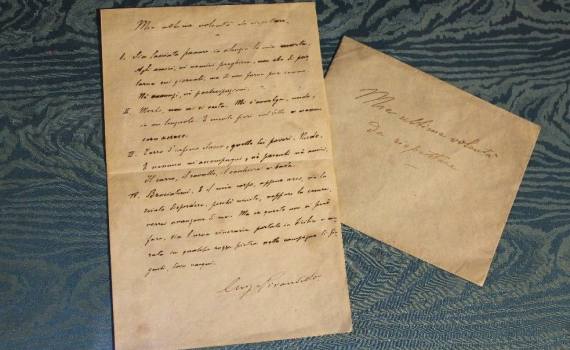 Mie ultime volontà da rispettare.
I. Sia lasciata passare in silenzio la mia morte.
Agli amici, ai nemici preghiera, non che di par
larne sui giornali, ma di non farne pur cenno.
Né annunzi, né partecipazioni.
II. Morto, non mi si vesta. Mi s'avvolga, nudo,
in un lenzuolo. E niente fiori sul letto e nessun
cero acceso.
III. Carro d'infima classe, quello dei poveri. Nudo.
E nessuno m'accompagni, né parenti né amici.
Il carro, il cavallo, il cocchiere e basta.
IV. Bruciatemi. E il mio corpo, appena arso, sia la
sciato disperdere; perché niente, neppure la cenere,
vorrei avanzasse di me. Ma se questo non si può
fare, sia l'urna cineraria portata in Sicilia e mu
rata in qualche rozza pietra nella campagna di Gir
genti, dove nacqui.
Luigi Pirandello
Mie ultime volontà
da rispettare